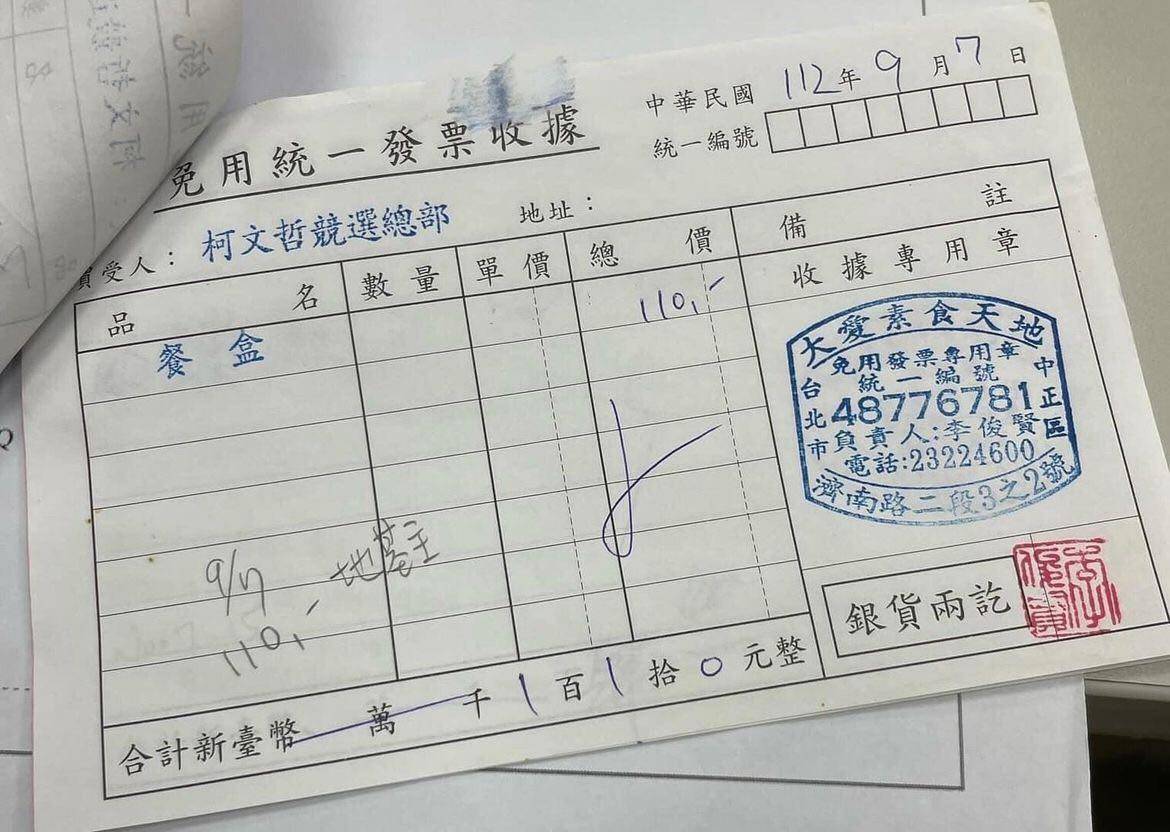 免用統一發票收據
中華民國 112年 9月 7日
統一編號
買受人：柯文哲競選總部 地址：
品名 數量 單價 總價 備註
餐盒 110,-
收據專用章
大愛素食天地
免用發票專用章
統一編號
48776781
台北市
中正區
負責人:李俊賢
電話:23224600
濟南路二段3之2號
9/7 地基主
110,-
銀貨兩訖
合計新臺幣 萬 千 1 百 1 拾 0 元整